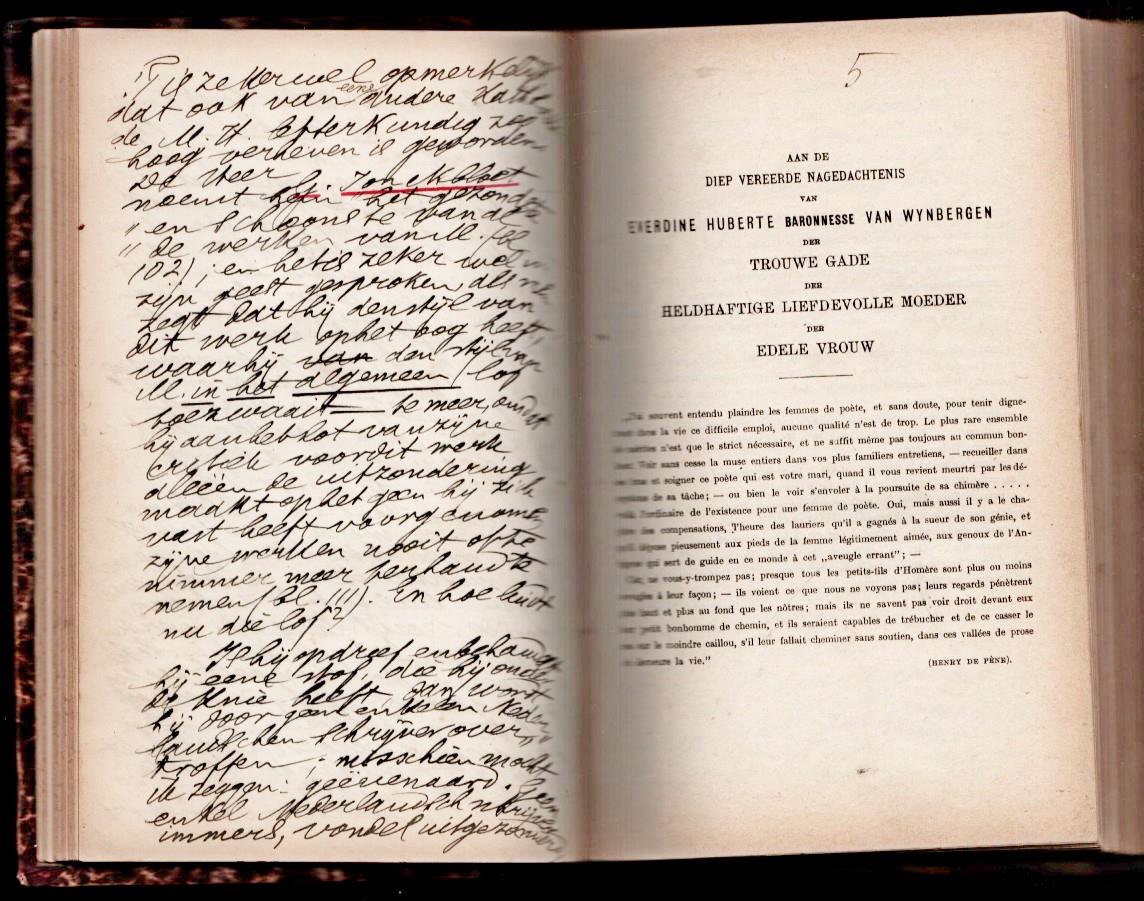 'T is zeker wel opmerkelijk
dat ook van eene andere
de M. H. letterkundig zoo
hoog verheven is geworden
De Veer
noemt het gezondste
"en schoonste van de
"de werken van M.
102); en het is zeker wel
zijn geest gesproken, als
zegt dat hij den stijl van
dit werk op het oog heeft,
waarbij van den stijl van
M. in het algemeen lof
toezwaait — te meer, omdat
hij aan het slot van zijne
critiek voor dit werk
alleen de uitzondering
maakt op het geen hij zich
vast heeft voorgenomen
zijne werken nooit of te
nimmer meer ter hand te
nemen (bl. 111). En hoe luidt
nu die lof?
Is hij op dreef en behandelt
hij eene stof, die hij onder
de knie heeft, dan wordt
hij door geen enkelen Neder
landschen Schrijver over„
troffen; misschien mocht
ik zeggen: geëvenaard. Geen
enkel Nederlandsch schrijver
immers, Vondel uitgezonderd
5
AAN DE
DIEP VEREERDE NAGEDACHTENIS
VAN
EVERDINE HUBERTE BARONNESSE VAN WYNBERGEN
DER
TROUWE GADE
DER
HELDHAFTIGE LIEFDEVOLLE MOEDER
DER
EDELE VROUW
„J'ai souvent entendu plaindre les femmes de poète, et sans doute, pour tenir digne-
dans la vie ce difficile emploi, aucune qualité n'est de trop. Le plus rare ensemble
n'est que le strict nécessaire, et ne suffit même pas toujours au commun bon-
Voir sans cesse la muse entiers dans vos plus familiers entretiens, — recueillir dans
et soigner ce poète qui est votre mari, quand il vous revient meurtri par les dé-
de sa tâche; — ou bien le voir s'envoler à la poursuite de sa chimère . . . . .
l'ordinaire de l'existence pour une femme de poète. Oui, mais aussi il y a le cha-
des compensations, l'heure des lauriers qu'il a gagnés à la sueur de son génie, et
dépose pieusement aux pieds de la femme légitimement aimée, aux genoux de l'An-
qui sert de guide en ce monde à cet „aveugle errant"; —
ne vous-y-trompez pas; presque tous les petits-fils d'Homère sont plus ou moins
à leur façon; — ils voient ce que nous ne voyons pas; leurs regards pénètrent
haut et plus au fond que les nôtres; mais ils ne savent pas voir droit devant eux
petit bonhomme de chemin, et ils seraient capables de trébucher et de ce casser le
sur le moindre caillou, s'il leur fallait cheminer sans soutien, dans ces vallées de prose
demeure la vie."
(HENRY DE PÈNE).